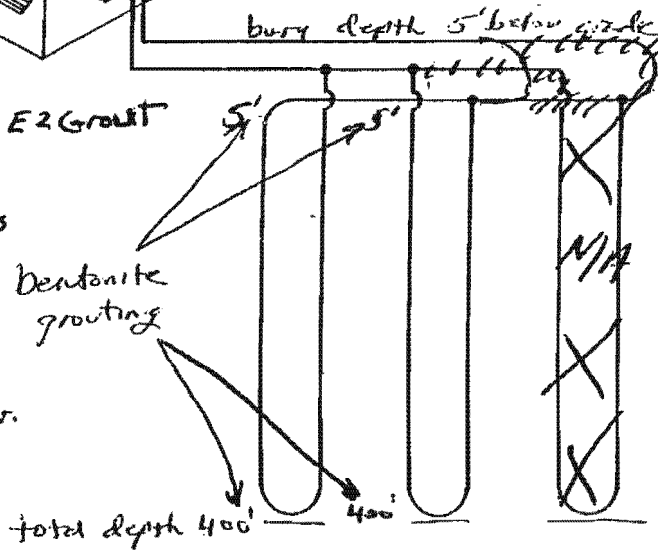 bury depth 5' below grade
E2 Grout
5'
5'
s
bentonite
grouting
N/A
r.
total depth 400'
400'